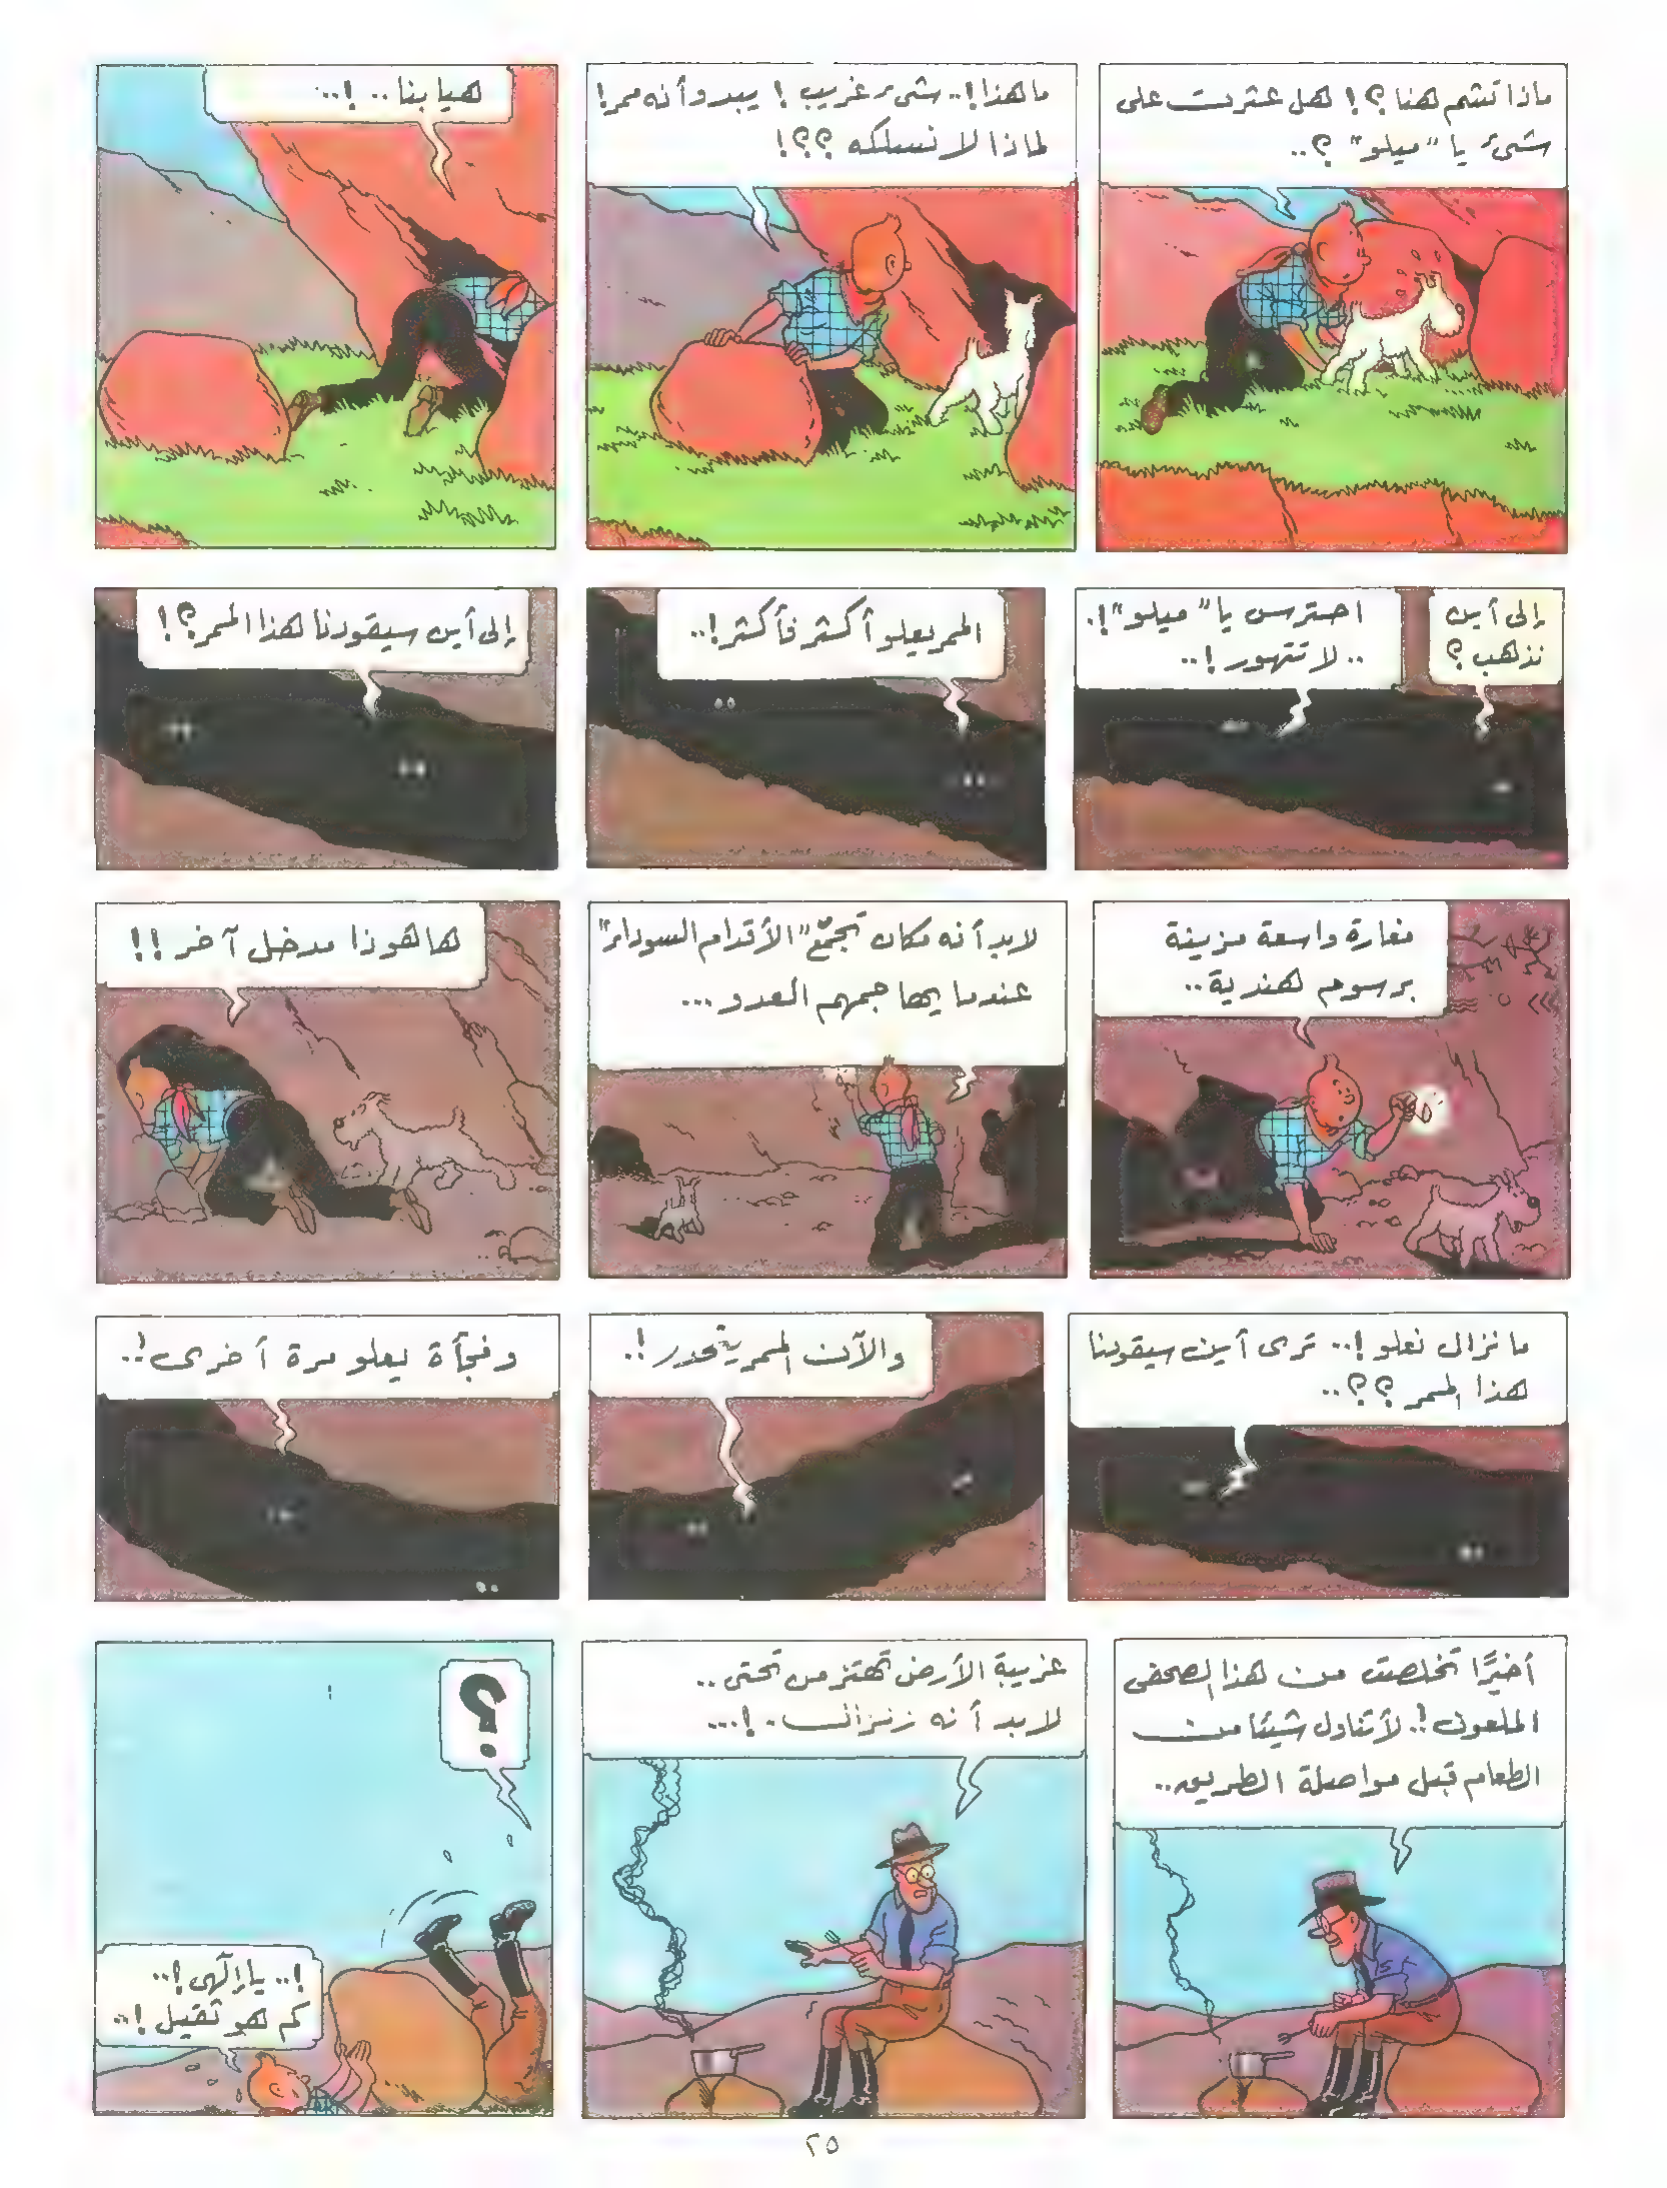 ماذا تشم هنا؟! هل عثرت على
شيء يا "ميلو"؟..
ما هذا!.. شيء غريب! يبدو أنه ممر!
لماذا لا نسلكه؟؟!
هيا بنا.. !..
إلى أين
نذهب؟
احترس يا "ميلو"!.
.. لا تتهور!..
الممر يعلو أكثر فأكثر!..
إلى أين سيقودنا هذا الممر؟!
مغارة واسعة مزينة
برسوم هندية..
لابد أنه مكان تجمّع "الأقدام السوداء"
عندما يهاجمهم العدو...
ها هو ذا مدخل آخر!!
ما نزال نعلو!.. ترى أين سيقودنا
هذا الممر؟؟..
والآن الممر ينحدر!.
وفجأة يعلو مرة أخرى!..
أخيرًا تخلصت من هذا الصحفى
الملعون!. لأتناول شيئا من
الطعام قبل مواصلة الطريق..
غريبة الأرض تهتز من تحتى..
لابد أنه زلزال.. !...
؟
!.. يا إلهى!..
كم هو ثقيل!..
٢٥